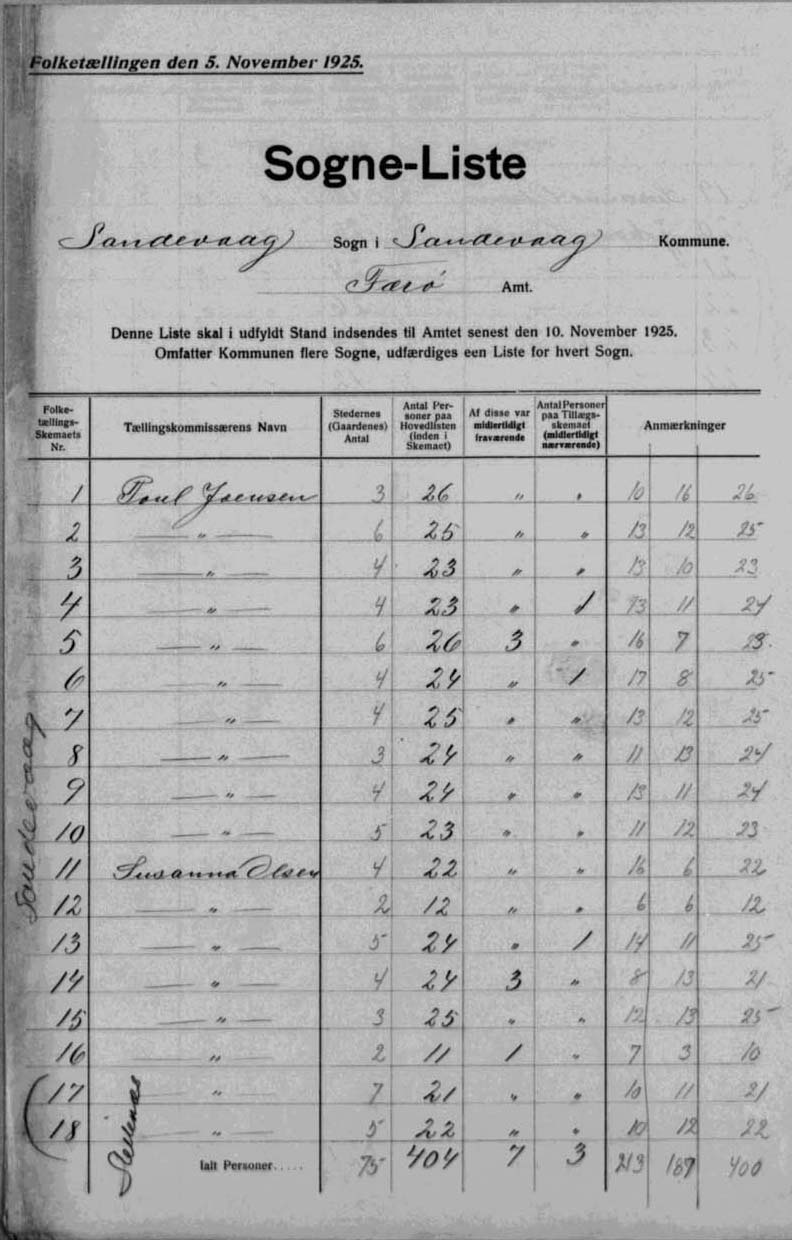 Folketællingen den 5. November 1925.
Sogne-Liste
Sandevaag Sogn i Sandevaag Kommune.
Færö Amt.
Denne Liste skal i udfyldt Stand indsendes til Amtet senest den 10. November 1925.
Omfatter Kommunen flere Sogne, udfærdiges een Liste for hvert Sogn.
Folketællings-Skemaets Nr. Tællingskommissærens Navn Stedernes (Gaardenes) Antal Antal Personer paa Hovedlisten (inden i Skemaet) Af disse var midlertidigt fraværende Antal Personer paa Tillægsskemaet (midlertidigt nærværende) Anmærkninger
1 Poul Joensen 3 26 " " 10 16 26
2 — " — 6 25 " " 13 12 25
3 — " — 4 23 " " 13 10 23
4 — " — 4 23 " 1 13 11 24
5 — " — 6 26 3 " 16 7 23.
6 — " — 4 24 " 1 17 8 25
7 — " — 4 25 " " 13 12 25
8 — " — 3 24 " " 11 13 24
9 — " — 4 24 " " 13 11 24
10 — " — 5 23 " " 11 12 23
11 Susanna Olsen 4 22 " " 16 6 22
12 — " — 2 12 " " 6 6 12
13 — " — 5 24 " 1 14 11 25
14 — " — 4 24 3 " 8 13 21
15 — " — 3 25 " " 12 13 25
16 — " — 2 11 1 " 7 3 10
17 — " — 7 21 " " 10 11 21
18 — " — 5 22 " " 10 12 22
Ialt Personer..... 75 404 7 3 213 187 400
Sandevaag